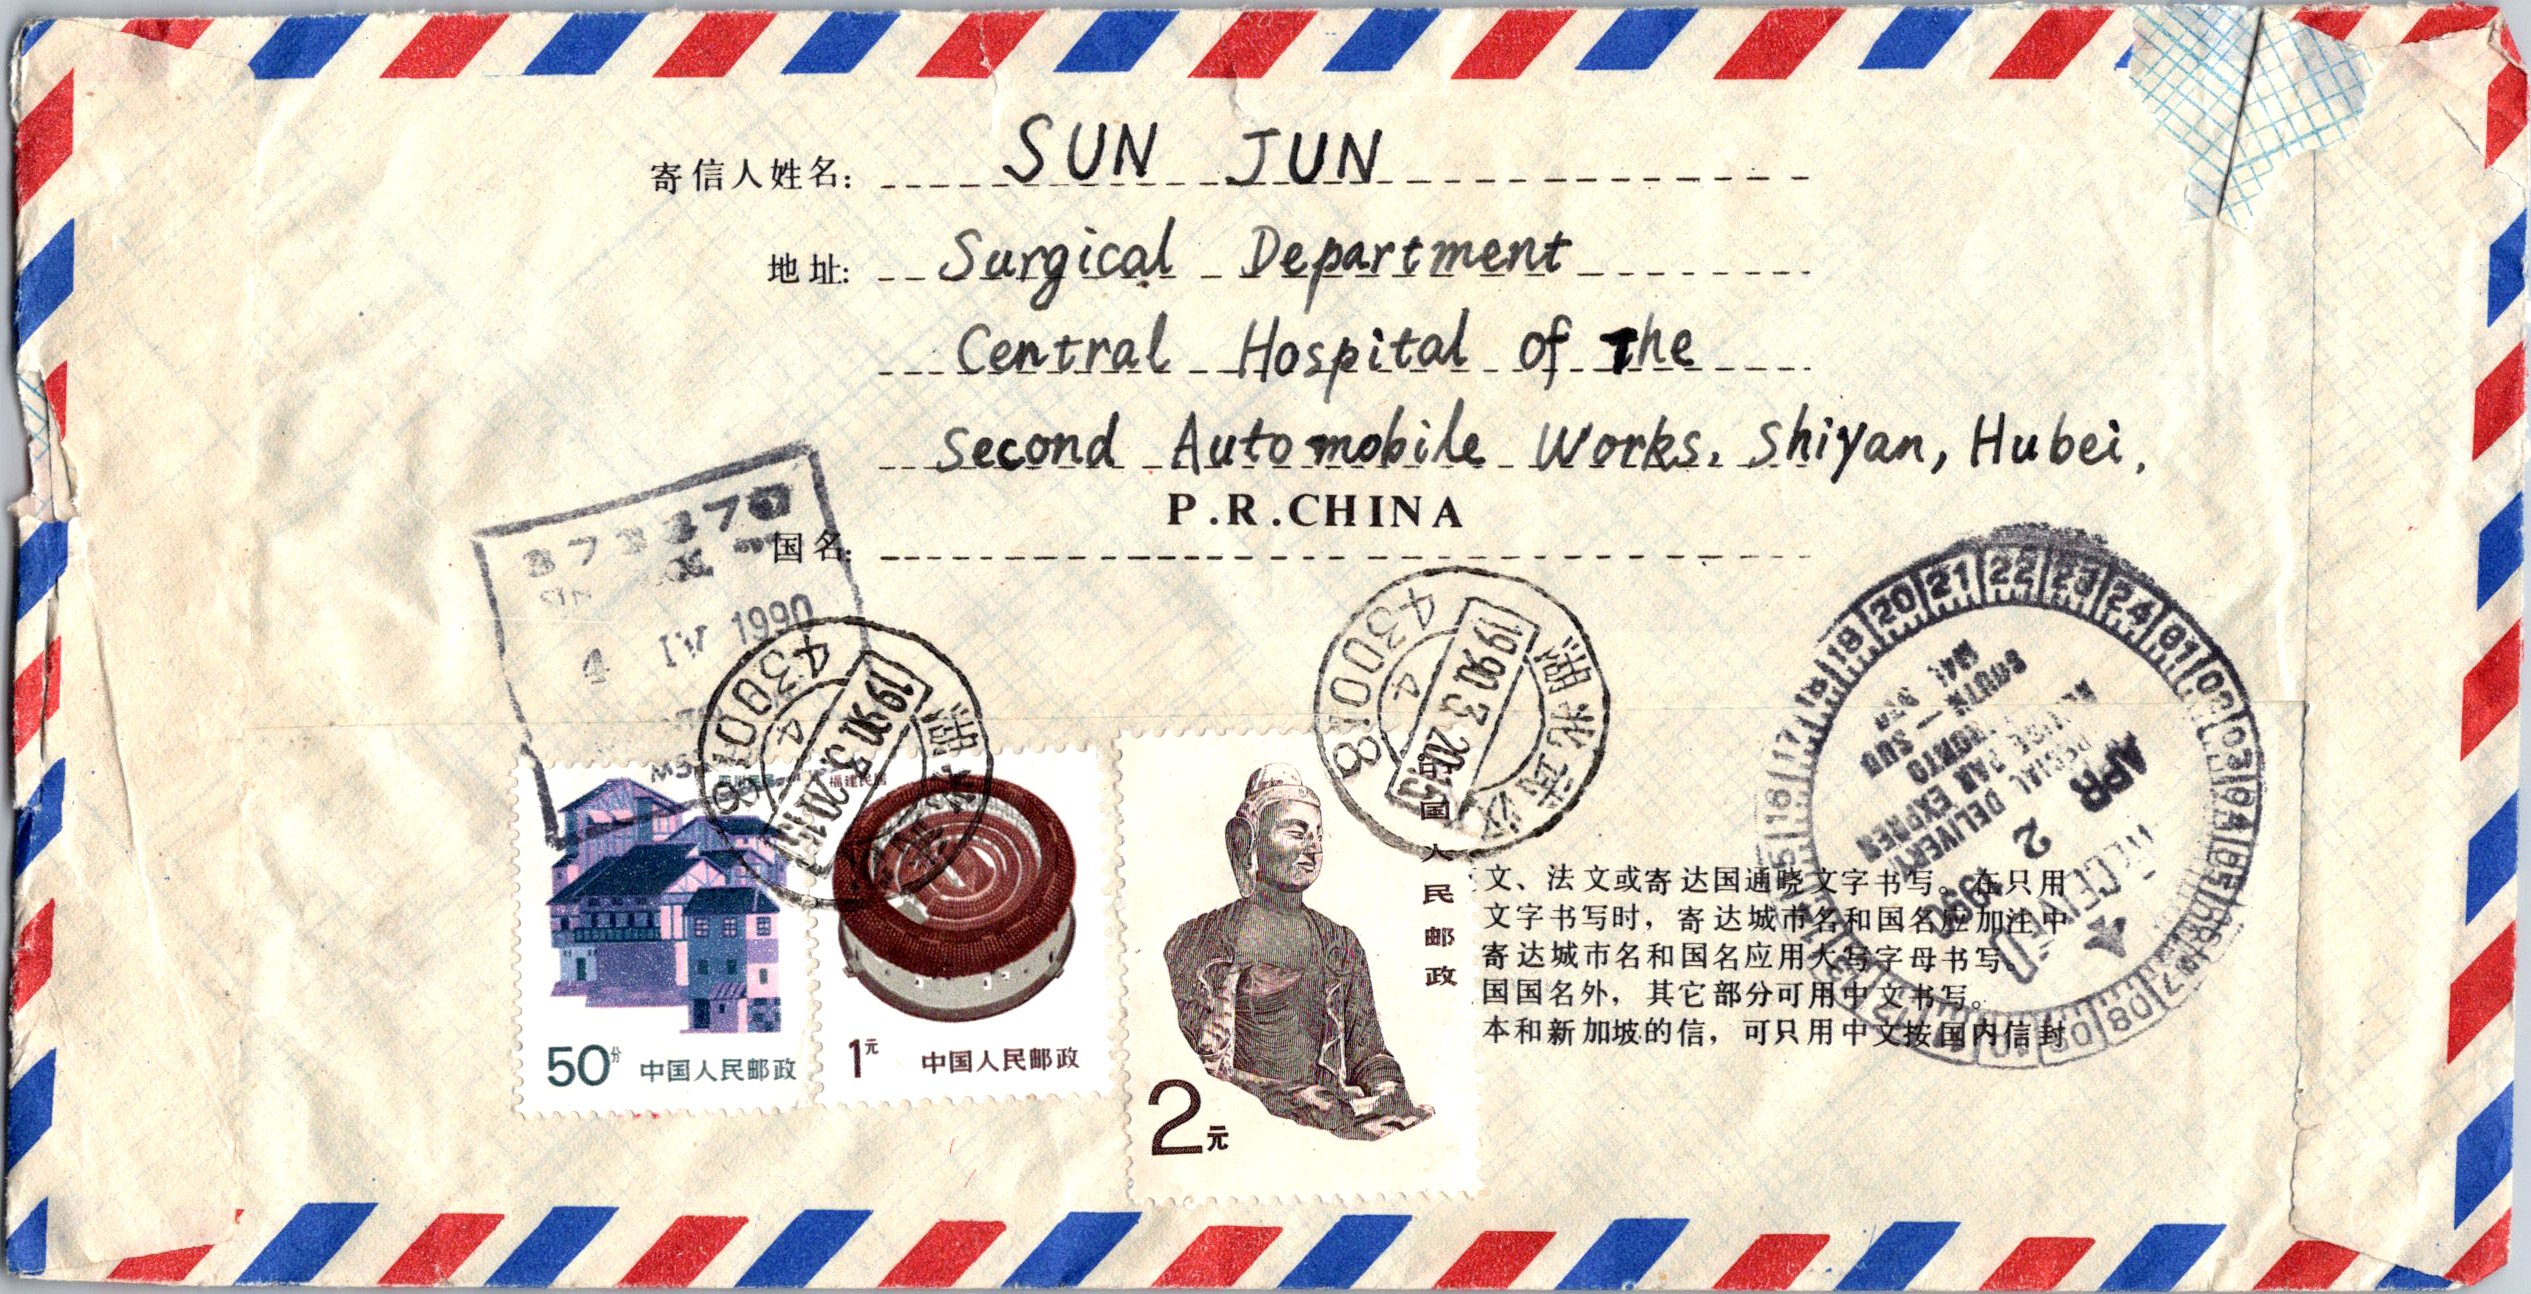 寄信人姓名: SUN JUN
地址: Surgical Department
Central Hospital of The
Second Automobile Works. Shiyan, Hubei.
P.R.CHINA
国名:
4 IV 1990
430018
4
1990.3.20.15
430018
4
1990.3.20.15
21 22 23 24 01 02 03 04 05
RECEIVED
APR 2 1990
SPECIAL DELIVERY
PAR EXPRES
福建民居
50分 中国人民邮政
1元 中国人民邮政
2元
中国人民邮政
文、法文或寄达国通晓文字书写。在只用
文字书写时，寄达城市名和国名应加注中
寄达城市名和国名应用大写字母书写。
国国名外，其它部分可用中文书写。
本和新加坡的信，可只用中文按国内信封